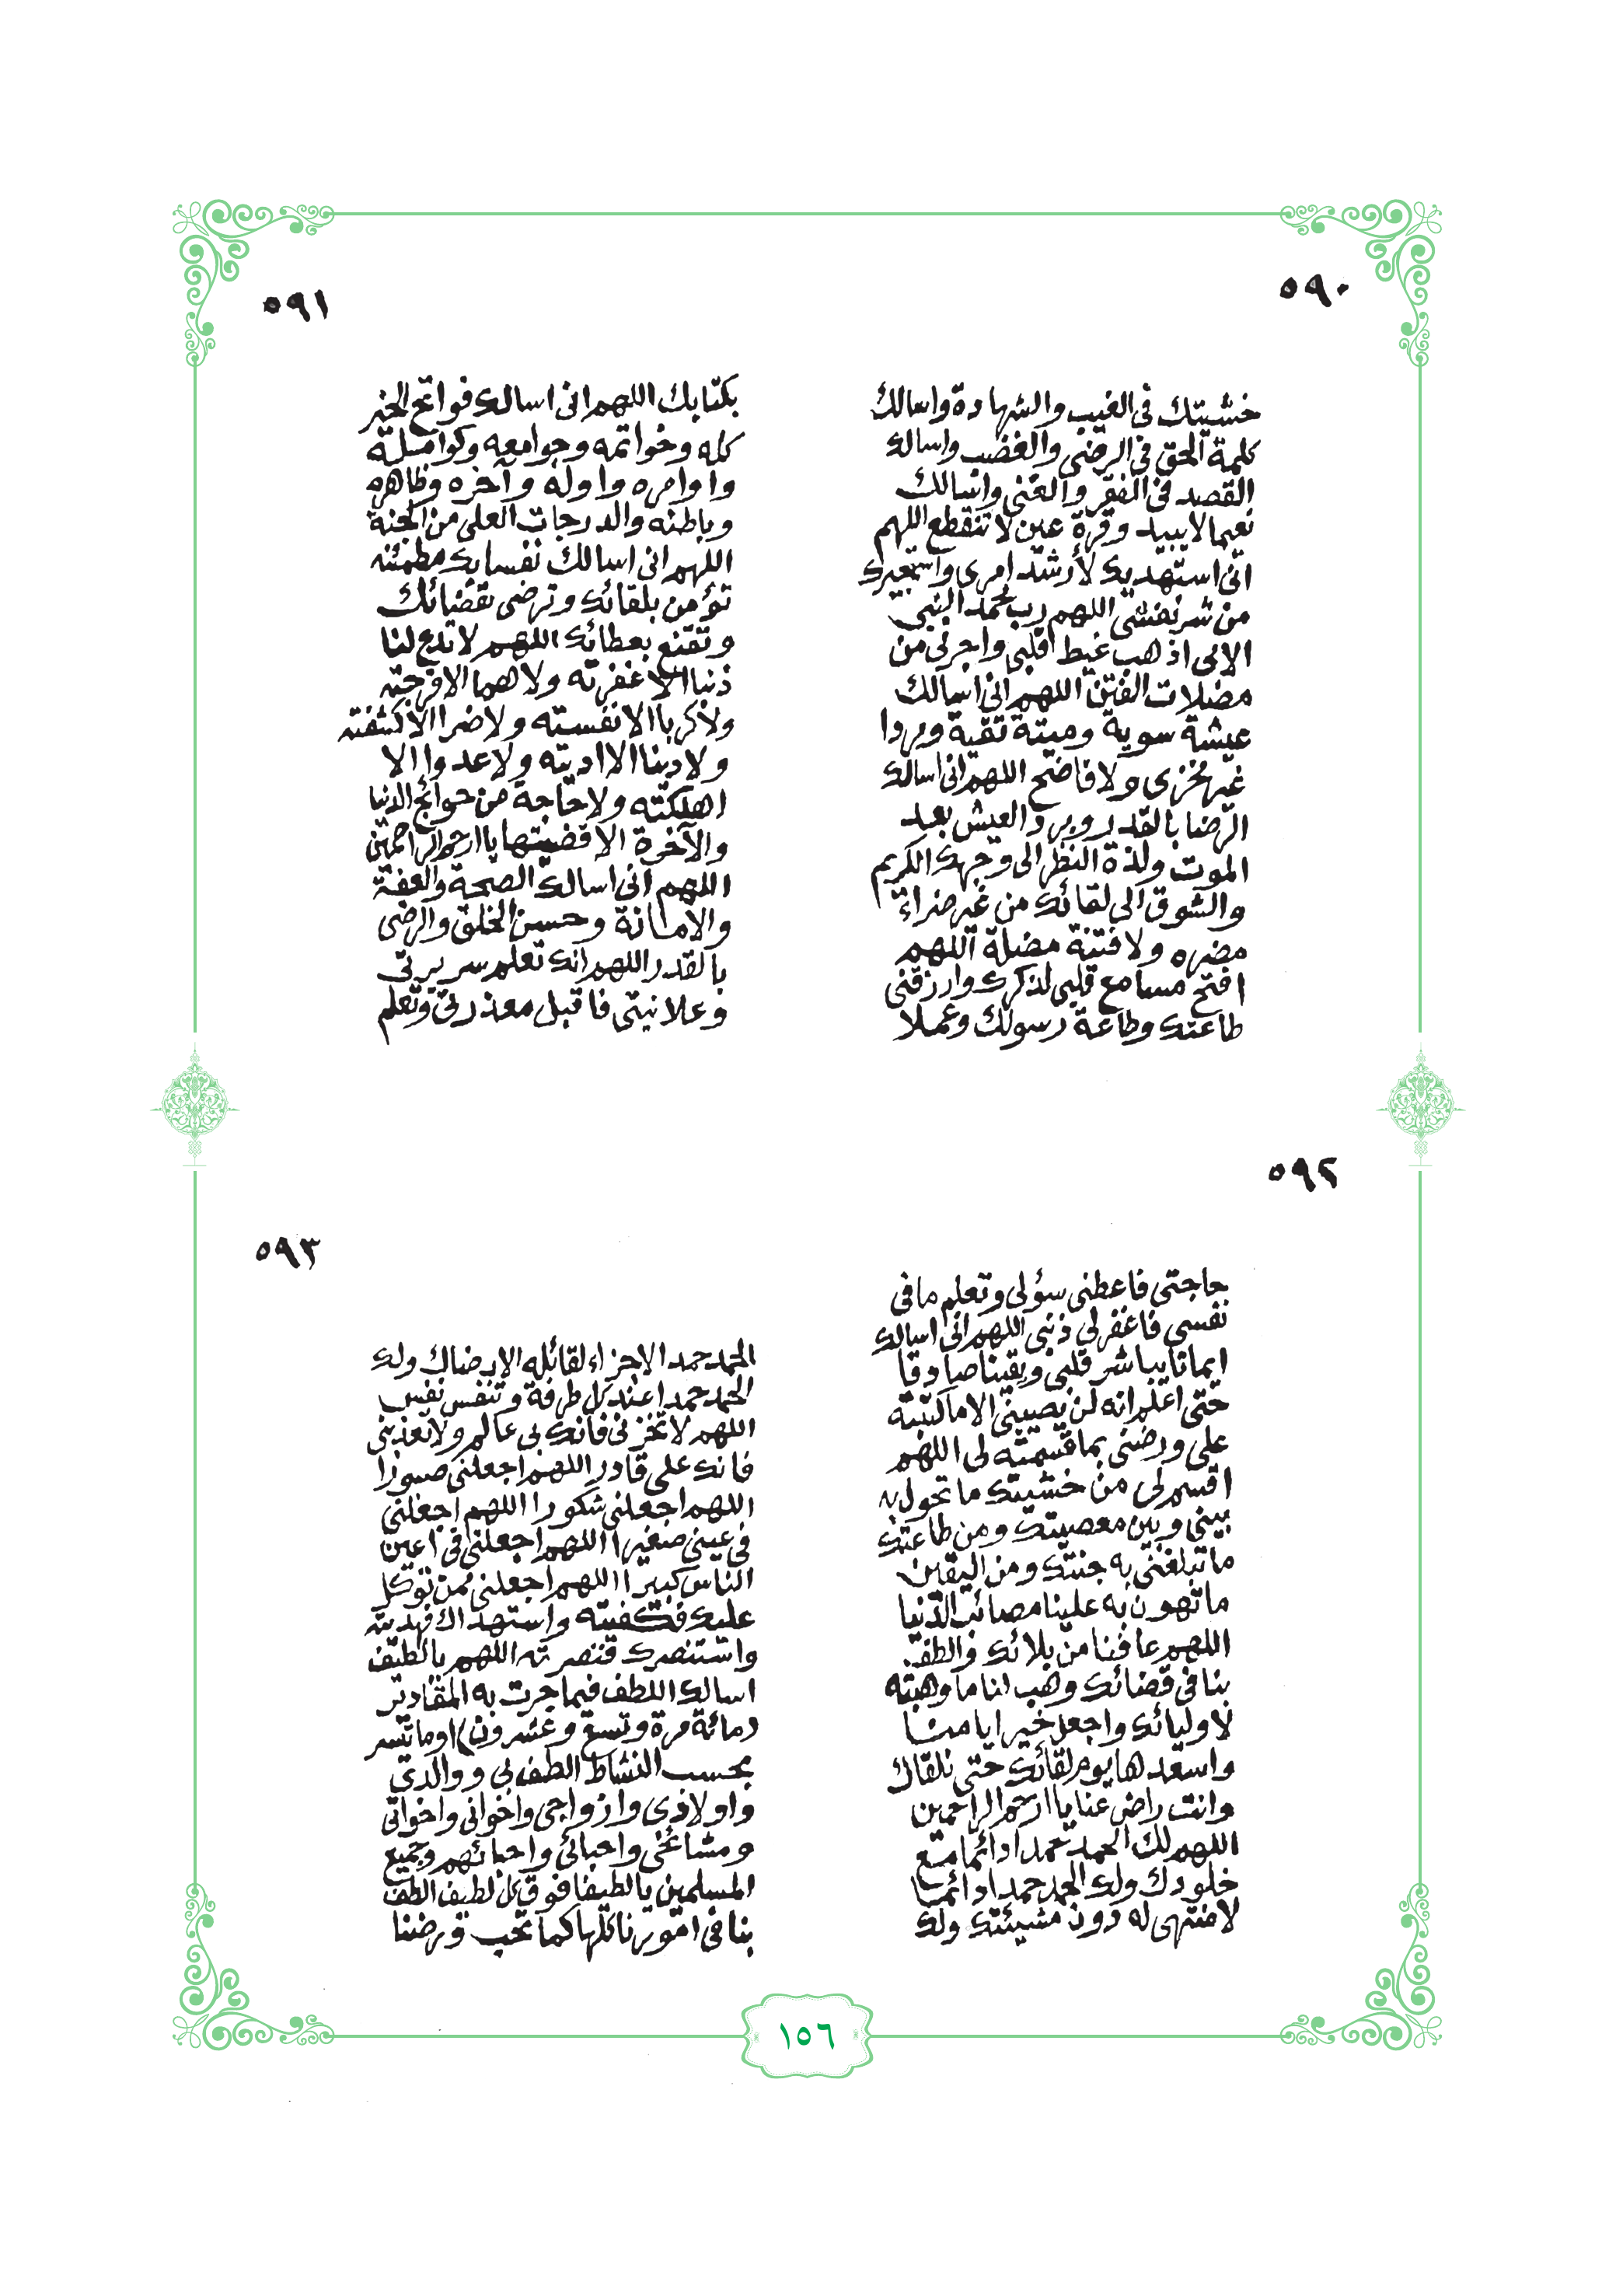 ٥٩٠
خشيتك في الغيب والشهادة واسالك
كلمة الحق في الرضى والغضب واسالك
القصد في الفقر والغنى واسالك
نعيما لا يبيد وقرة عين لا تنقطع اللهم
اني استهديك لأرشد امري واستجيرك
من شر نفسي اللهم رب محمد النبي
الامي اذهب غيط قلبي واجرني من
مضلات الفتن اللهم اني اسالك
عيشة سوية وميتة تقية ومردا
غير مخزى ولا فاضح اللهم اني اسالك
الرضا بالقدر وبرد العيش بعد
الموت ولذة النظر الى وجهك الكريم
والشوق الى لقائك من غير ضراء
مضره ولا فتنة مضلة اللهم
افتح مسامع قلبي لذكرك وارزقني
طاعتك وطاعة رسولك وعملا
٥٩١
بكتابك اللهم اني اسالك فواتح الخير
كله وخواتمه وجوامعه وكوامله
واوامره واوله وآخره وظاهره
وباطنه والدرجات العلى من الجنة
اللهم اني اسالك نفسا بك مطمئنه
تؤمن بلقائك وترضى بقضائك
وتقنع بعطائك اللهم لا تدع لنا
ذنبا الا غفرته ولا هما الا فرجته
ولا كربا الا نفسته ولا ضرا الا كشفته
ولا دينا الا اديته ولا عدوا الا
اهلكته ولا حاجة من حوائج الدنيا
والآخرة الا قضيتها يا ارحم الراحمين
اللهم اني اسالك الصحة والعفة
والامانة وحسن الخلق والرضى
بالقدر اللهم انك تعلم سريرتي
وعلانيتي فاقبل معذرتي وتعلم
٥٩٢
حاجتي فاعطني سؤلي وتعلم ما في
نفسي فاغفر لي ذنبي اللهم اني اسالك
ايمانا يباشر قلبي ويقينا صادقا
حتى اعلم انه لن يصيبني الا ما كتبته
علي ورضني بما قسمته لي اللهم
اقسم لي من خشيتك ما تحول به
بيني وبين معصيتك ومن طاعتك
ما تبلغني به جنتك ومن اليقين
ما تهون به علينا مصائب الدنيا
اللهم عافنا من بلائك والطف
بنا في قضائك وهب لنا ما وهبته
لاوليائك واجعل خير ايامنا
واسعدها يوم لقائك حتى نلقاك
وانت راض عنا يا ارحم الراحمين
اللهم لك الحمد حمدا دائما مع
خلودك ولك الحمد حمدا دائما
لا منتهى له دون مشيئتك ولك
٥٩٣
الحمد حمدا لا جزاء لقائله الا رضاك ولك
الحمد حمدا عند كل طرفة وتنفس نفس
اللهم لا تخزني فانك بي عالم ولا تعذبني
فانك علي قادر اللهم اجعلني صبورا
اللهم اجعلني شكورا اللهم اجعلني
في عيني صغيرا اللهم اجعلني في اعين
الناس كبيرا اللهم اجعلني ممن توكل
عليك فكفيته واستهداك فهديته
واستنصرك فنصرته اللهم يا لطيف
اسالك اللطف فيما جرت به المقادير
(مائة مرة وتسع وعشرون) او ما تيسر
بحسب النشاط الطف بي ووالدي
واولادي وازواجي واخواني واخواتي
ومشائخي واحبائي واحبائهم وجميع
المسلمين يا لطيفا فوق كل لطيف الطف
بنا في امورنا كلها كما تحب ورضنا
١٥٦